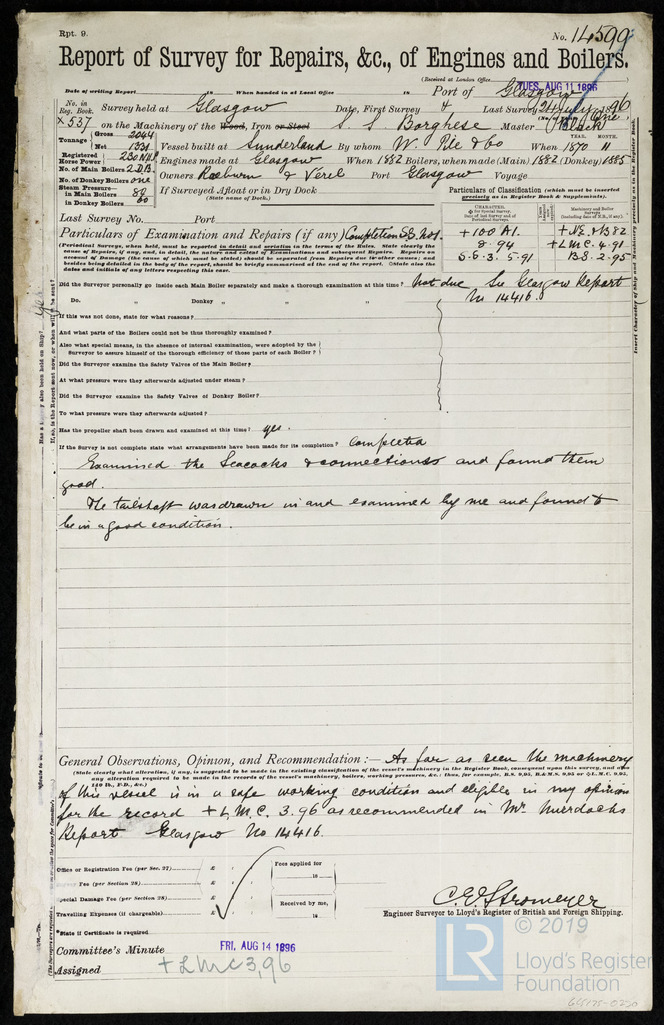 Rpt. 9.
No. 14599
Report of Survey for Repairs, &c., of Engines and Boilers.
(Received at London Office
TUES. AUG 11 1896
Date of writing Report in When handed in at Local Office in Port of Glasgow
No. in Reg. Book. Survey held at Glasgow Date, First Survey & Last Survey 24 July 1896
×537 on the Machinery of the Wood, Iron or Steel S S Borghese Master Black
Tonnage Gross 2044 Net 1331
Vessel built at Sunderland By whom W. Pile & Co When 1870 11
YEAR. MONTH.
Registered Horse Power 230 NHP
Engines made at Glasgow When 1882 Boilers, when made (Main) 1882 (Donkey) 1885
No. of Main Boilers 2 D.B.
No. of Donkey Boilers one
Owners Raeburn & Verel Port Glasgow Voyage
Steam Pressure—
in Main Boilers 80
in Donkey Boilers 60
If Surveyed Afloat or in Dry Dock
(State name of Dock.)
Particulars of Classification (which must be inserted precisely as in Register Book & Supplements).
Last Survey No. Port
CHARACTER.
Machinery and Boiler Surveys
+100 A1. + N.E. & B 82
8.94 + L.M.C. 4.91
S.S. 3. 5.91 B.S. 2.95
Particulars of Examination and Repairs (if any) Completion
(Periodical Surveys, when held, must be reported in detail and seriatim in the terms of the Rules. State clearly the cause of Repairs, if any, and, in detail, the nature and extent of Examinations and subsequent Repairs. Repairs on account of Damage (the cause of which must be stated) should be separated from Repairs due to other causes; and besides being detailed in the body of the report, should be briefly summarised at the end of the report. State also the dates and initials of any letters respecting this case.
Did the Surveyor personally go inside each Main Boiler separately and make a thorough examination at this time? Not due See Glasgow Report
Do. " Donkey " " " No 14416.
If this was not done, state for what reasons?
And what parts of the Boilers could not be thus thoroughly examined?
Also what special means, in the absence of internal examination, were adopted by the Surveyor to assure himself of the thorough efficiency of those parts of each Boiler?
Did the Surveyor examine the Safety Valves of the Main Boiler?
At what pressure were they afterwards adjusted under steam?
Did the Surveyor examine the Safety Valves of Donkey Boiler?
To what pressure were they afterwards adjusted?
Has the propeller shaft been drawn and examined at this time? yes.
If the Survey is not complete state what arrangements have been made for its completion? Completed
Examined the Seacocks & connections and found them
good.
The tailshaft was drawn in and examined by me and found to
be in a good condition.
General Observations, Opinion, and Recommendation :— As far as seen the machinery
(State clearly what alteration, if any, is suggested to be made in the existing classification of the vessel's machinery in the Register Book, consequent upon this survey, and also any alteration required to be made in the records of the vessel's machinery, boilers, working pressures, &c.: thus, for example, B.S. 9,95, B.&M.S. 9,95 or L.M.C. 9,95, 140 lb., F.D., &c.)
of this vessel is in a safe working condition and eligible in my opinion
for the record + L.M.C. 3.96 as recommended in Mr Murdochs
Report Glasgow No 14416.
Office or Registration Fee (per Sec. 27) £ : : Fees applied for
Fee (per Section 28) £ 18
Special Damage Fee (per Section 28) £ Received by me,
Travelling Expenses (if chargeable) £ 18
State if Certificate is required
C.E. Stromeyer
Engineer Surveyor to Lloyd's Register of British and Foreign Shipping.
Committee's Minute FRI. AUG 14 1896
Assigned + LMC 3,96
© 2019
LR
Lloyd's Register
Foundation
Insert Character of Ship and Machinery precisely as in the Register Book.